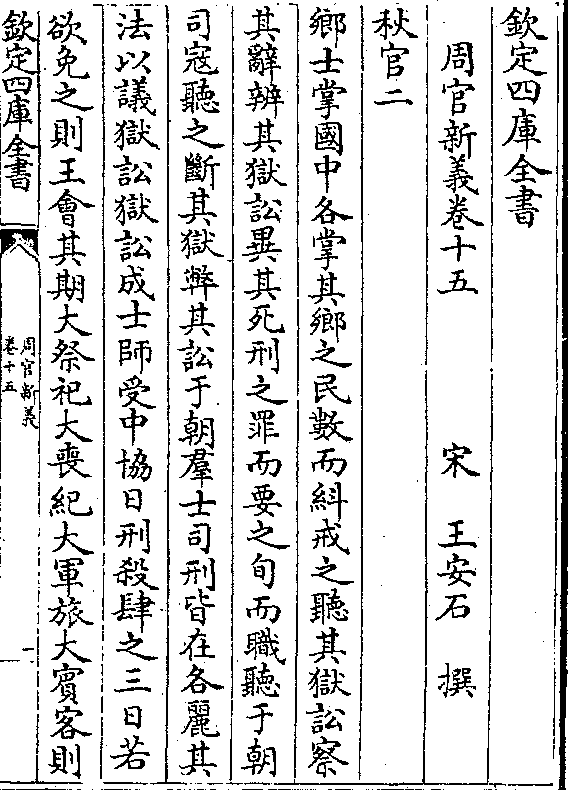 欽定四庫全書
周官新義卷十五　宋　王安石　撰
秋官二
鄉士掌國中各掌其鄉之民數而糾戒之聽其獄訟察
其辭辨其獄訟異其死刑之罪而要之旬而職聽于朝
司寇聽之斷其獄弊其訟于朝羣士司刑皆在各麗其
法以議獄訟獄訟成士師受中協日刑殺肆之三日若
欲免之則王會其期大祭祀大喪紀大軍旅大賓客則
欽定四庫全書
周官新義
卷十五
一